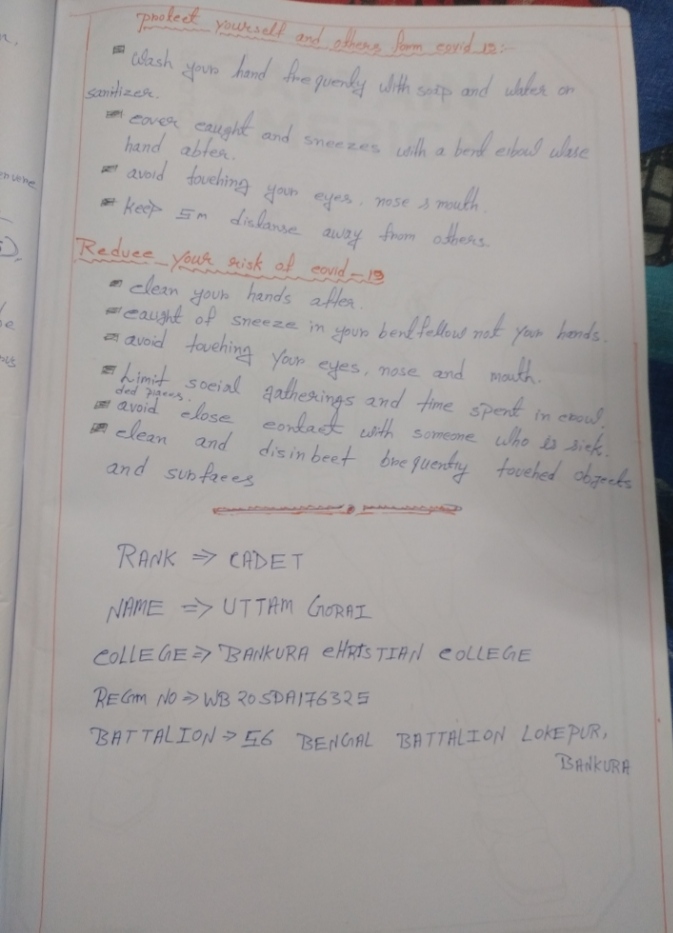 protect yourself and others form covid_19:-
wash your hand frequently with soap and water or
sanitizer.
cover caught and sneezes with a bend elbow wase
hand abter.
avoid touching your eyes, nose & mouth.
keep 5m distanse away from others.
Reduce_your risk of covid-19
clean your hands after.
caught of sneeze in your bentfellow not your hands.
avoid touching your eyes, nose and mouth.
Limit social gatherings and time spent in crow.
ded places.
avoid close contact with someone who is sick.
clean and disinbect brequently touched objects
and surfaces
RANK ⇒ CADET
NAME ⇒ UTTAM GORAI
COLLEGE ⇒ BANKURA CHRISTIAN COLLEGE
REGM NO ⇒ WB20SDA176325
BATTALION ⇒ 56 BENGAL BATTALION LOKEPUR,
BANKURA